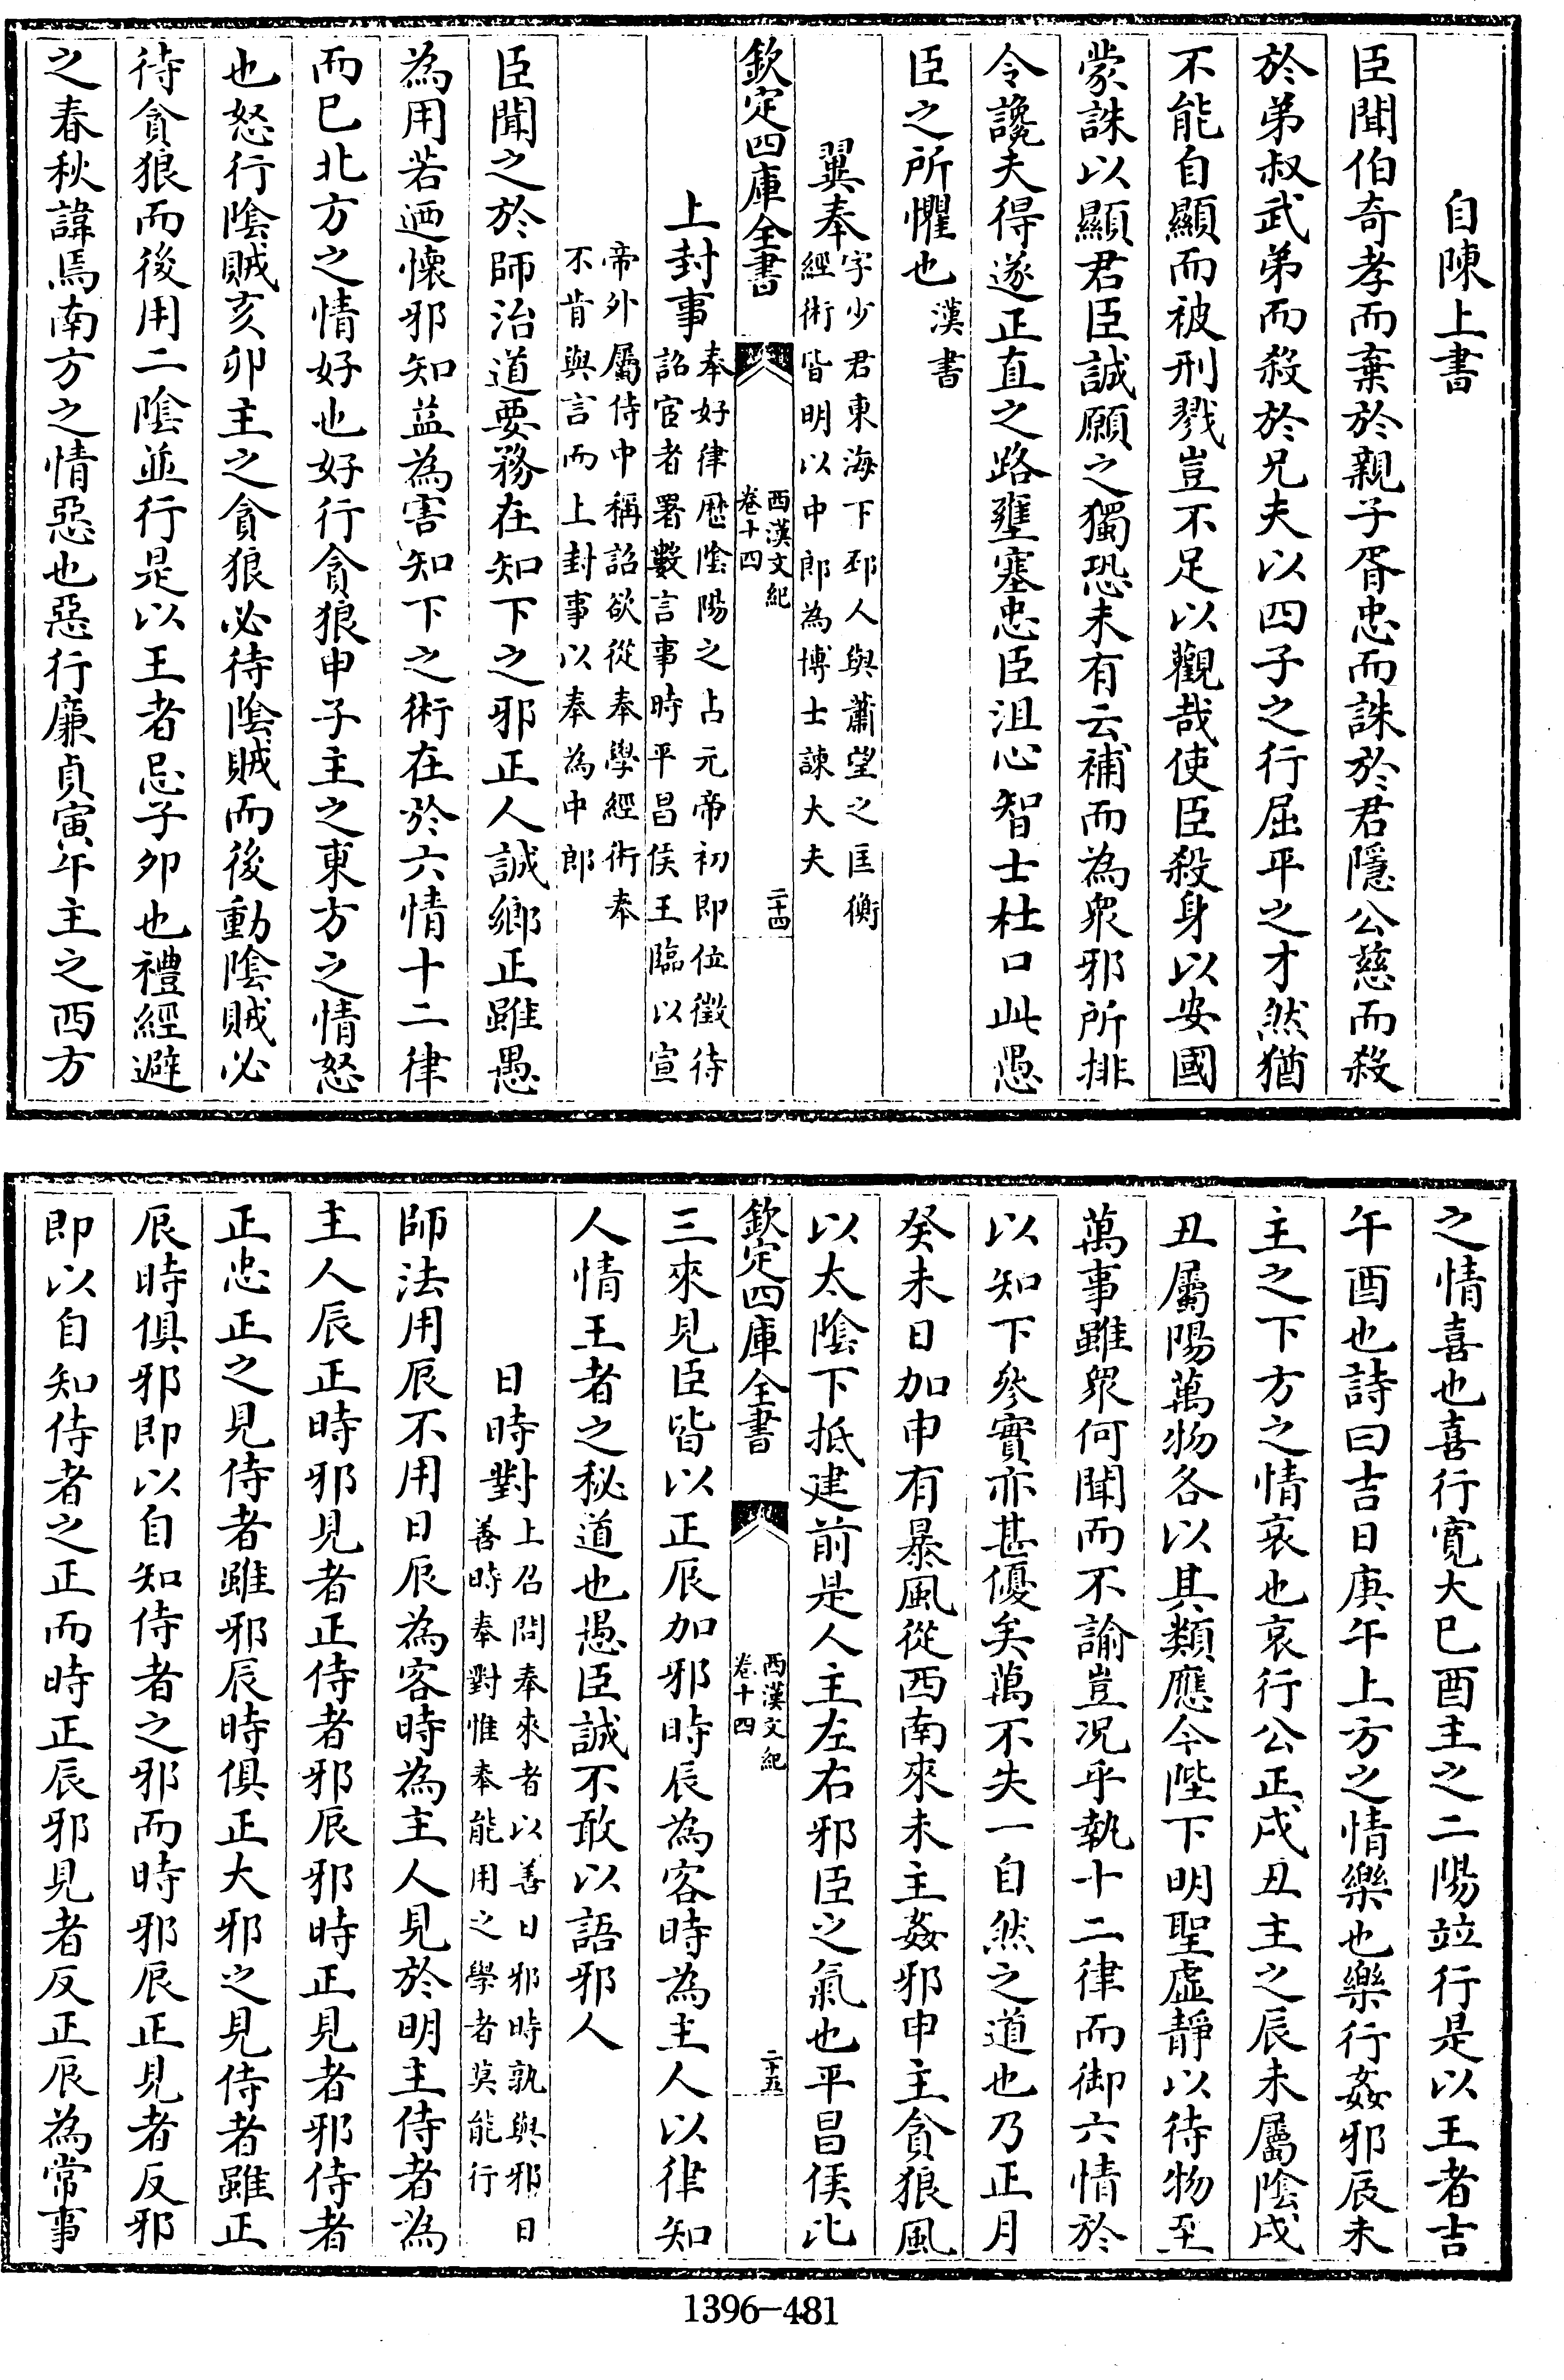 自陳上書
臣聞伯奇孝而棄於親子胥忠而誅於君隱公慈而殺
於弟叔武弟而殺於兄夫以四子之行屈平之才然猶
不能自顯而被刑戮豈不足以觀哉使臣殺身以安國
蒙誅以顯君臣誠願之獨恐未有云補而為衆邪所排
令讒夫得遂正直之路壅塞忠臣沮心智士杜口此愚
臣之所懼也漢書
翼奉字少君東海下邳人與蕭望之匡衡
經術皆明以中郎為博士諫大夫
欽定四庫全書
西漢文紀
卷十四
二十四
上封事奉好律歴陰陽之占元帝初即位徵待
詔宦者署數言事時平昌侯王臨以宣
帝外屬侍中稱詔欲從奉學經術奉
不肯與言而上封事以奉為中郎
臣聞之於師治道要務在知下之邪正人誠鄉正雖愚
為用若迺懷邪知益為害知下之術在於六情十二律
而已北方之情好也好行貪狼申子主之東方之情怒
也怒行陰賊亥卯主之貪狼必待陰賊而後動陰賊必
待貪狼而後用二陰並行是以王者忌子卯也禮經避
之春秋諱焉南方之情惡也惡行廉貞寅午主之西方
之情喜也喜行寛大巳酉主之二陽竝行是以王者吉
午酉也詩曰吉日庚午上方之情樂也樂行姦邪辰未
主之下方之情哀也哀行公正戌丑主之辰未屬陰戌
丑屬陽萬物各以其類應今陛下明聖虛靜以待物至
萬事雖衆何聞而不諭豈况乎執十二律而御六情於
以知下參實亦甚優矣萬不失一自然之道也乃正月
癸未日加申有暴風從西南來未主姦邪申主貪狼風
以太陰下抵建前是人主左右邪臣之氣也平昌侯比
欽定四庫全書
西漢文紀
卷十四
二十五
三來見臣皆以正辰加邪時辰為客時為主人以律知
人情王者之秘道也愚臣誠不敢以語邪人
日時對上召問奉來者以善日邪時孰與邪日
善時奉對惟奉能用之學者莫能行
師法用辰不用日辰為客時為主人見於明主侍者為
主人辰正時邪見者正侍者邪辰邪時正見者邪侍者
正忠正之見侍者雖邪辰時俱正大邪之見侍者雖正
辰時俱邪即以自知侍者之邪而時邪辰正見者反邪
即以自知侍者之正而時正辰邪見者反正辰為常事
1396-481